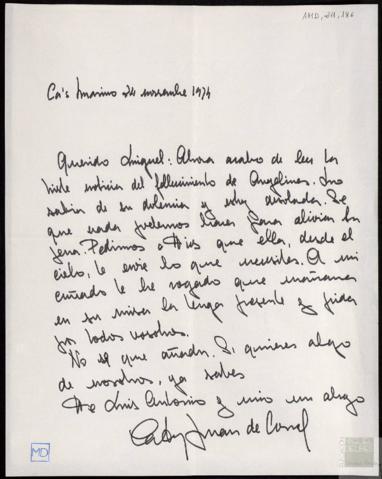 AMD, 211, 186
Ca's Marino 24 noviembre 1974
Querido Miguel: Ahora acabo de leer la
triste noticia del fallecimiento de Angelines. No
sabia de su dolencia y estoy desolada. Se
que nada podemos hacer para aliviar tu
pena. Pedimos a Dios que ella, desde el
cielo, te envie lo que necesitas. A mi
cuñado le he rogado que mañana
en su misa la tenga presente y pida
por todos vosotros.
No sé que añadir. Si quieres algo
de nosotros, ya sabes
De Luis Antonio y mio un abrazo
Juan de Corral
MD